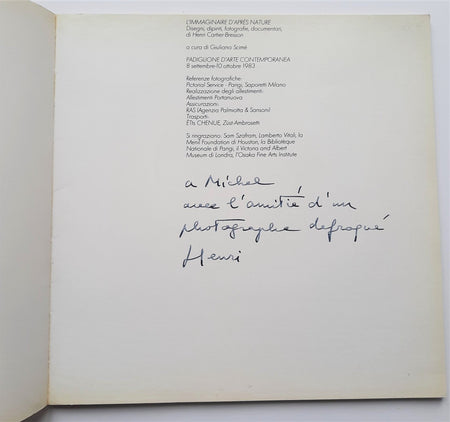 L'IMMAGINAIRE D'APRÈS NATURE
Disegni, dipinti, fotografie, documentari,
di Henri Cartier-Bresson
a cura di Giuliano Scimé
PADIGLIONE D'ARTE CONTEMPORANEA
8 settembre-10 ottobre 1983
Referenze fotografiche:
Pictorial Service - Parigi, Saporetti Milano
Realizzazione degli allestimenti:
Allestimenti Portanuova
Assicurazioni:
RAS (Agenzia Palmiotta & Sansoni)
Trasporti:
ETts CHENUE, Züst-Ambrosetti
Si ringraziano: Sam Szafram, Lamberto Vitali, la
Menil Foundation di Houston, la Bibliotèque
Nationale di Parigi, il Victoria and Albert
Museum di Londra, l'Osaka Fine Arts Institute
a Michel
avec l'amitié d'un
photographe defroqué
Henri